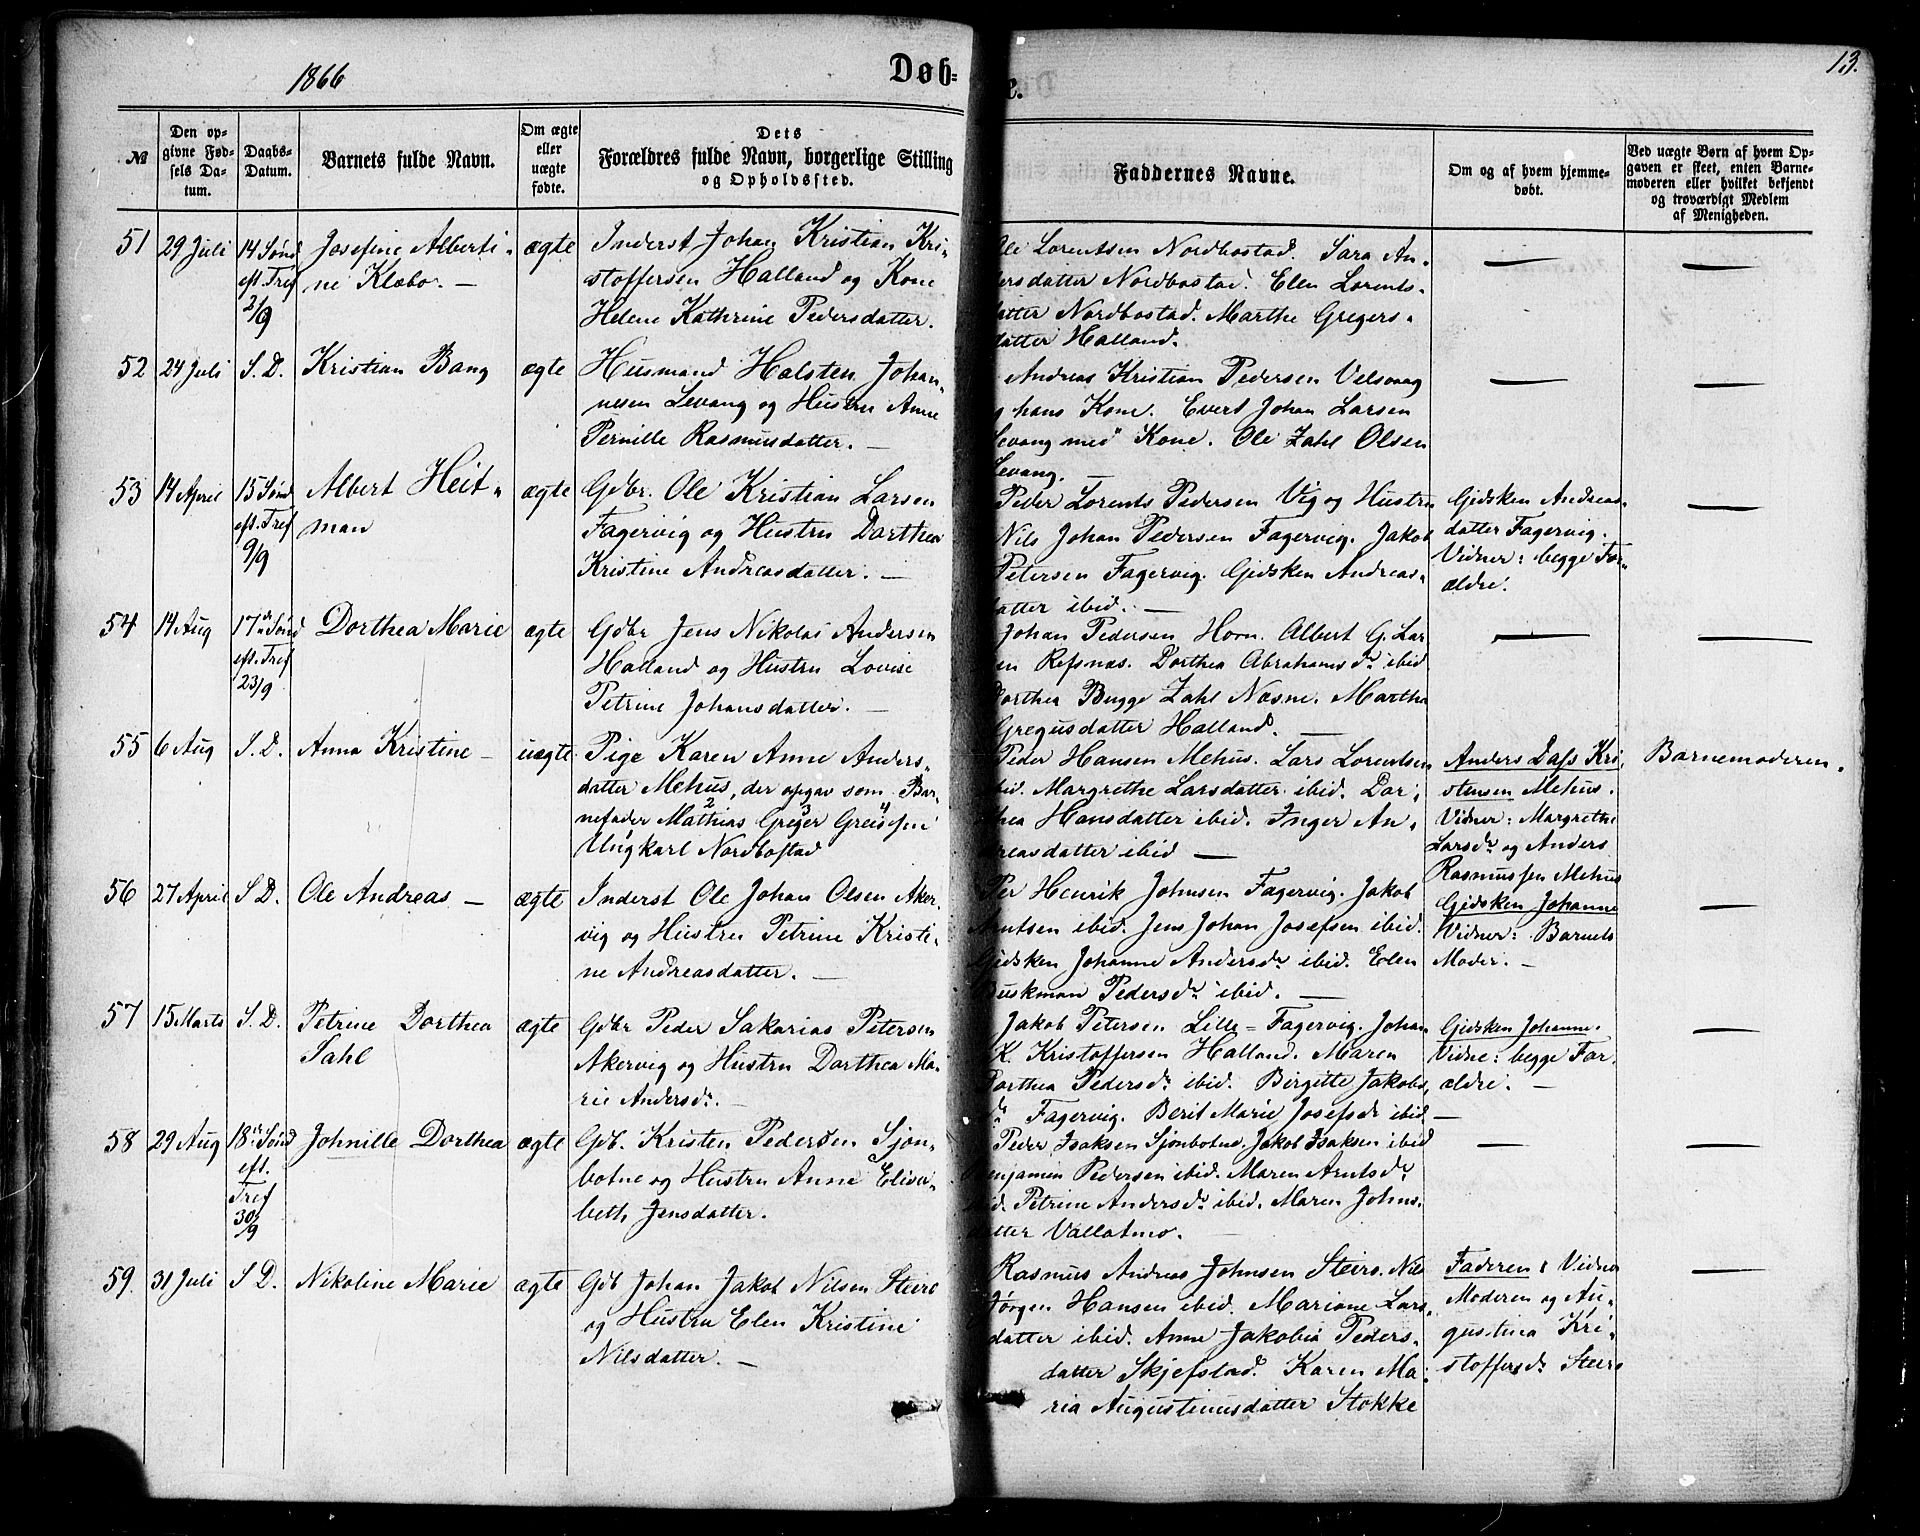 1866
Døb-
e.
13.
№
Den op-
givne Fød-
sels Da-
tum.
Daabs-
Datum.
Barnets fulde Navn.
Om ægte
eller
uægte
fødte.
Dets
Forældres fulde Navn, borgerlige Stilling
og Opholdssted.
Faddernes Navne.
Om og af hvem hjemme-
døbt.
Ved uægte Børn af hvem Op-
gaven er skeet, enten Barne-
moderen eller hvilket bekjendt
og troværdigt Medlem
af Menigheden.
51
29 Juli
14 Sønd
eft. Tref
2/9
Josefine Alberti-
ne Klæbo. —
ægte
Inderst Johan Kristian Kri-
stoffersen Halland og Kone
Helene Kathrine Pedersdatter.
Ole Lorentsen Nordbostad. Sara An-
dersdatter Nordbostad. Elen Lorents-
datter Nordbostad. Marthe Gregers-
datter Halland.
—
—
52
24 Juli
S. D.
Kristian Bang
ægte
Husmand Halsten Johan-
nesen Levang og Hustru Anne
Pernille Rasmusdatter. —
Andreas Kristian Pedersen Velsvaag
og hans Kone. Evert Johan Larsen
Levang med Kone. Ole Zahl Olsen
Levang. —
—
—
53
14 April
15 Sønd
eft. Tref
9/9
Albert Heit-
man
ægte
Gdbr. Ole Kristian Larsen
Fagervig og Hustru Dorthea
Kristine Andreasdatter. —
Peder Lorents Pedersen Vig og Hustru
Nils Johan Pedersen Fagervig. Jakob
Petersen Fagervig. Gidsken Andreas-
datter ibid. —
Gidsken Andreas-
datter Fagervig.
Vidner: begge For-
ældre.
—
54
14 Aug
17de Sønd
eft. Tref
23/9
Dorthea Marie
ægte
Gdbr Jens Nikolai Andersen
Halland og Hustru Lovise
Petrine Johansdatter. —
Johan Pedersen Horn. Albert G. Lar-
sen Refsnæs. Dorthea Abrahamsdr ibid
Dorthea Bugge Zahl Næsne. Martha
Gregusdatter Halland. —
—
—
55
6 Aug
S. D.
Anna Kristine —
uægte
Pige Karen Anne Anders-
datter Mehus, der opgav som Bar-
nefader Mathias 2 Greger 3 Greisen 4
Ungkarl 1 Nordbostad
Peder Hansen Mehus. Lars Lorentsen
ibid. Margrethe Larsdatter ibid. Dor-
thea Hansdatter ibid. Inger An-
dreasdatter ibid —
Anders Dass Kri-
stensen Mehus.
Vidner: Margrethe
Larsdr og Anders
Rasmussen Mehus
Barnemoderen.
56
27 April
S D.
Ole Andreas —
ægte
Inderst Ole Johan Olsen Aker-
vig og Hustru Petrine Kristi-
ne Andreasdatter. —
Per Henrik Johnsen Fagervig. Jakob
Arntsen ibid. Jens Johan Josefsen ibid.
Gidsken Johanne Andersdr ibid. Elen
Buskman Pedersdr ibid. —
Gidsken Johanne
Vidner: Barnets
Moder. —
—
57
15 Marts
S. D.
Petrine Dorthea
Sahl
ægte
Gdbr Peder Sakarias Petersen
Akervig og Hustru Dorthea Ma-
rie Andersdr. —
Jakob Petersen Lille-Fagervig. Johan
K. Kristoffersen Halland. Maren
Dorthea Pedersdr ibid. Birgitte Jakobs-
dr Fagervig. Berit Marie Josefsdr ibid —
Gidsken Johanne.
Vidne: begge For-
ældre. —
—
58
29 Aug
18de Sønd
eft.
Tref
30/9
Johnille Dorthea
ægte
Gdb. Kristen Pedersen Sjon-
botne og Hustru Anne Elisa-
beth Jensdatter.
Peder Isaksen Sjonbotne. Jakob Isaksen ibid
Benjamin Pedersen ibid. Maren Arntsdr
ibid. Petrine Andersdr ibid. Maren Johns-
datter Vallatmo.
—
—
59.
31 Juli
S D.
Nikoline Marie
ægte
Gdb Johan Jakob Nilsen Steiro
og Hustru Elen Kristine
Nilsdatter. —
Rasmus Andreas Johnsen Steiro. Nils
Jørgen Hansen ibid. Mariane Lars-
datter ibid. Anne Jakobia Peders-
datter Skjefstad. Karen Ma-
ria Augustinusdatter Stokke
Faderen: Vidner
Moderen og Au-
gustina Kri-
stoffersdr Steiro
—